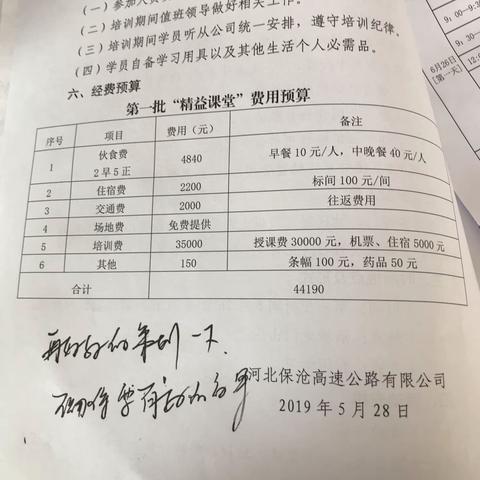 (一)参加人员
(二)培训期间值班领导做好相关工作。
(三)培训期间学员听从公司统一安排,遵守培训纪律。
(四)学员自备学习用具以及其他生活个人必需品。
六、经费预算
第一批“精益课堂”费用预算
序号 项目 费用(元) 备注
1 伙食费 2早5正 4840 早餐10元/人,中晚餐40元/人
2 住宿费 2200 标间100元/间
3 交通费 2000 往返费用
4 场地费 免费提供
5 培训费 35000 授课费30000元,机票、住宿5000元
6 其他 150 条幅100元,药品50元
合计 44190
再好好的策划一下.
河北保沧高速公路有限公司
2019年5月28日
9:00—9:3
9:30—
6月26日
[第一天]